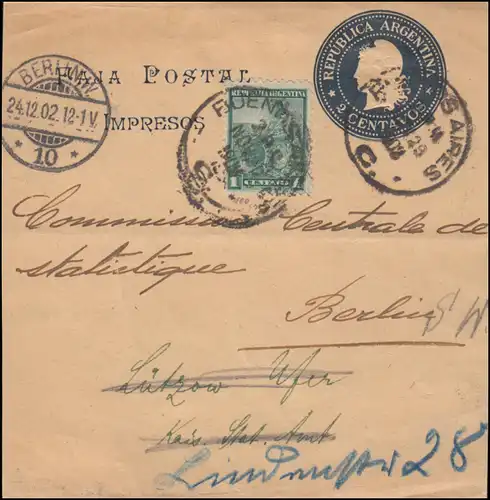 REPUBLICA ARGENTINA
2 CENTAVOS
FAJA POSTAL
IMPRESOS
BERLIN.W.
24.12.02.12-1V.
* 10 *
BUENOS AIRES
1 CENTAVO 1
Commission Centrale de
statistique
Berlin S W.
Lützow Ufer
Kais. Stat. Amt
Lindenstr 28